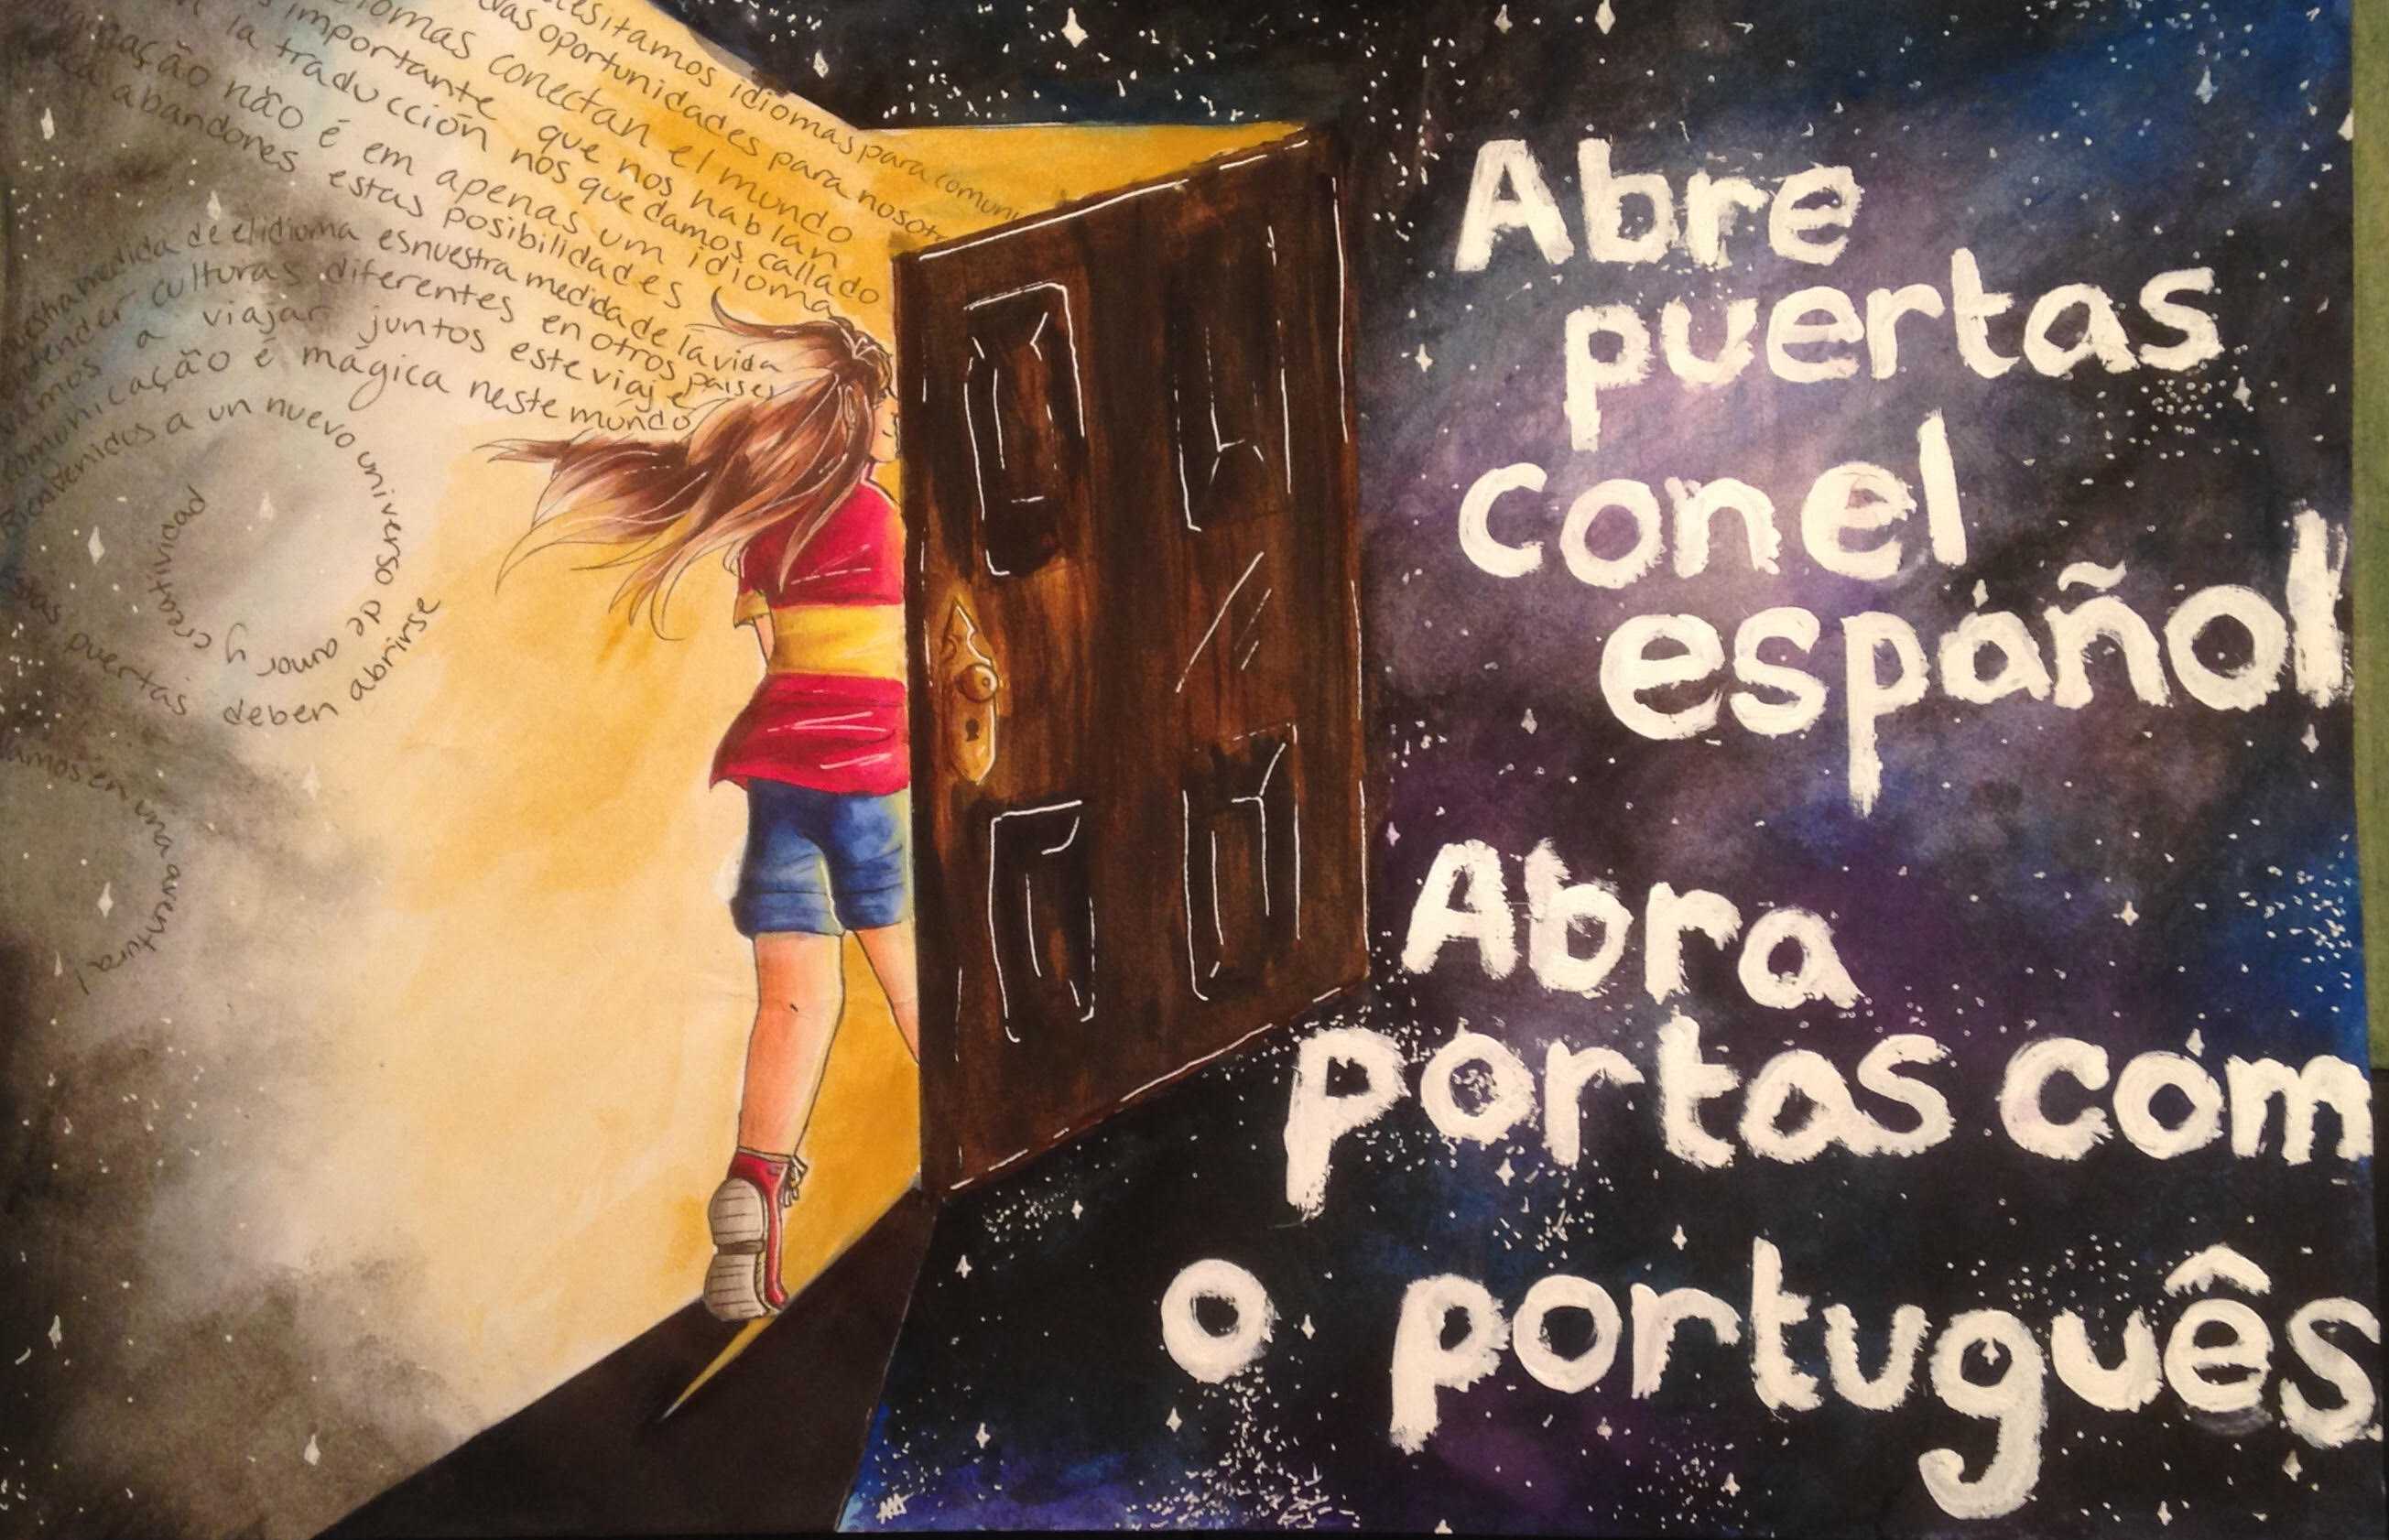 esitamos idiomas para comuni
vas oportunidades para nosotr
iomas conectan el mundo
importante que nos hablan
la traducción nos quedamos callado
nação não é em apenas um idioma
abandones estas posibilidades
medida de el idioma es nuestra medida de la vida
tender culturas diferentes en otros paises
vimos a viajar juntos este viaje
comunicação é mágica neste mundo
Bienvenidos a un nuevo universo de amor y creatividad
stas puertas deben abrirse
amos en una aventura!
Abre
puertas
con el
español
Abra
portas com
o português